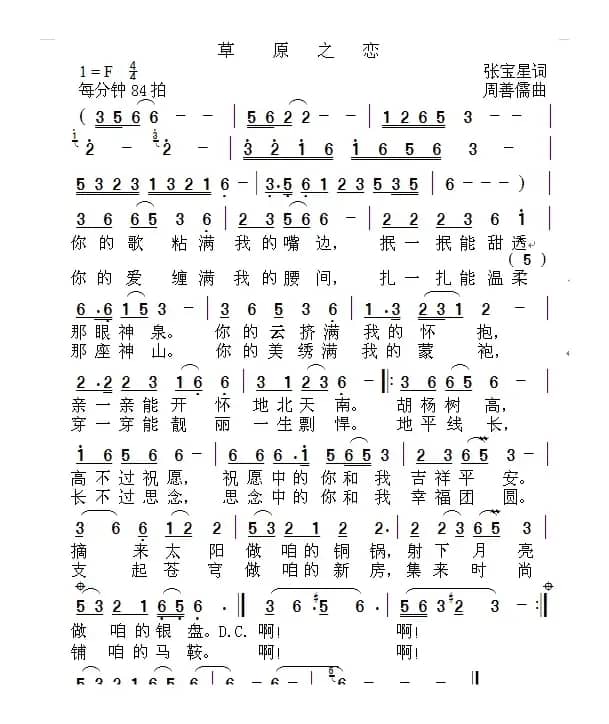 草 原 之 恋
1=F 4/4 张宝星词
每分钟 84 拍 周善儒曲
( 3 5 6 6 - - | 5 6 2 2 - - | 1 2 6 5 3 - |
2 - 2 - | 3 2 1 6 1 6 5 6 3 - |
5 3 2 3 1 3 2 1 6 - | 3. 5 6 1 2 3 5 3 5 | 6 - - - )
3 6 6 5 3 6 | 2 3 5 6 - | 2 2 2 3 6 i |
你 的 歌 粘 满 我 的 嘴 边, 抿 一 抿 能 甜 透
( 5 )
你 的 爱 缠 满 我 的 腰 间, 扎 一 扎 能 温 柔
6. 6 1 5 3 - | 3 6 5 3 6 | 1. 3 2 3 1 2 - |
那 眼 神 泉。 你 的 云 挤 满 我 的 怀 抱,
那 座 神 山。 你 的 美 绣 满 我 的 蒙 袍,
2. 2 2 3 1 6 | 5 6 2 3 6 - :3 6 6 5 6 |
亲 一 亲 能 开 怀 地 北 天 南。 胡 杨 树 高,
穿 一 穿 能 靓 丽 一 生 剽 悍。 地 平 线 长,
i 6 5 6 6 - | 6 6 6. i 5 6 5 3 | 2 3 6 5 - |
高 不 过 祝 愿, 祝 愿 中 的 你 和 我 吉 祥 平 安。
长 不 过 思 念, 思 念 中 的 你 和 我 幸 福 团 圆。
3 6 6 1 2 | 5 2 1 2 2. | 2 2 3 6 5 3 |
摘 来 太 阳 做 咱 的 铜 锅, 射 下 月 亮
支 起 苍 穹 做 咱 的 新 房, 集 来 时 尚
5 3 2 1 6 5 6. 3 6 #5 6. | 5 6 3 #2 3 - :
做 咱 的 银 盘。D.C. 啊! 啊!
铺 咱 的 马 鞍。 啊! 啊!